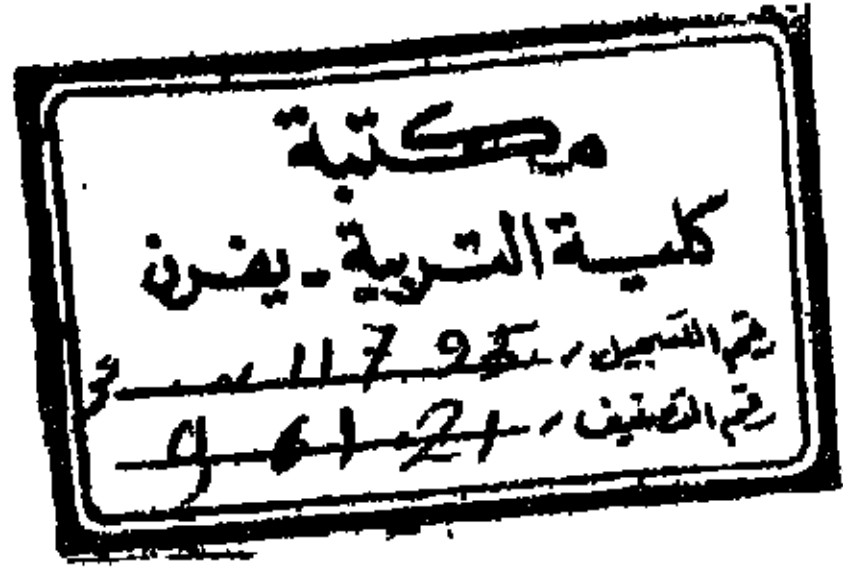 مكتبة
كلية التربية - يفرن
رقم التسجيل / 1179
رقم التصنيف / 961.21